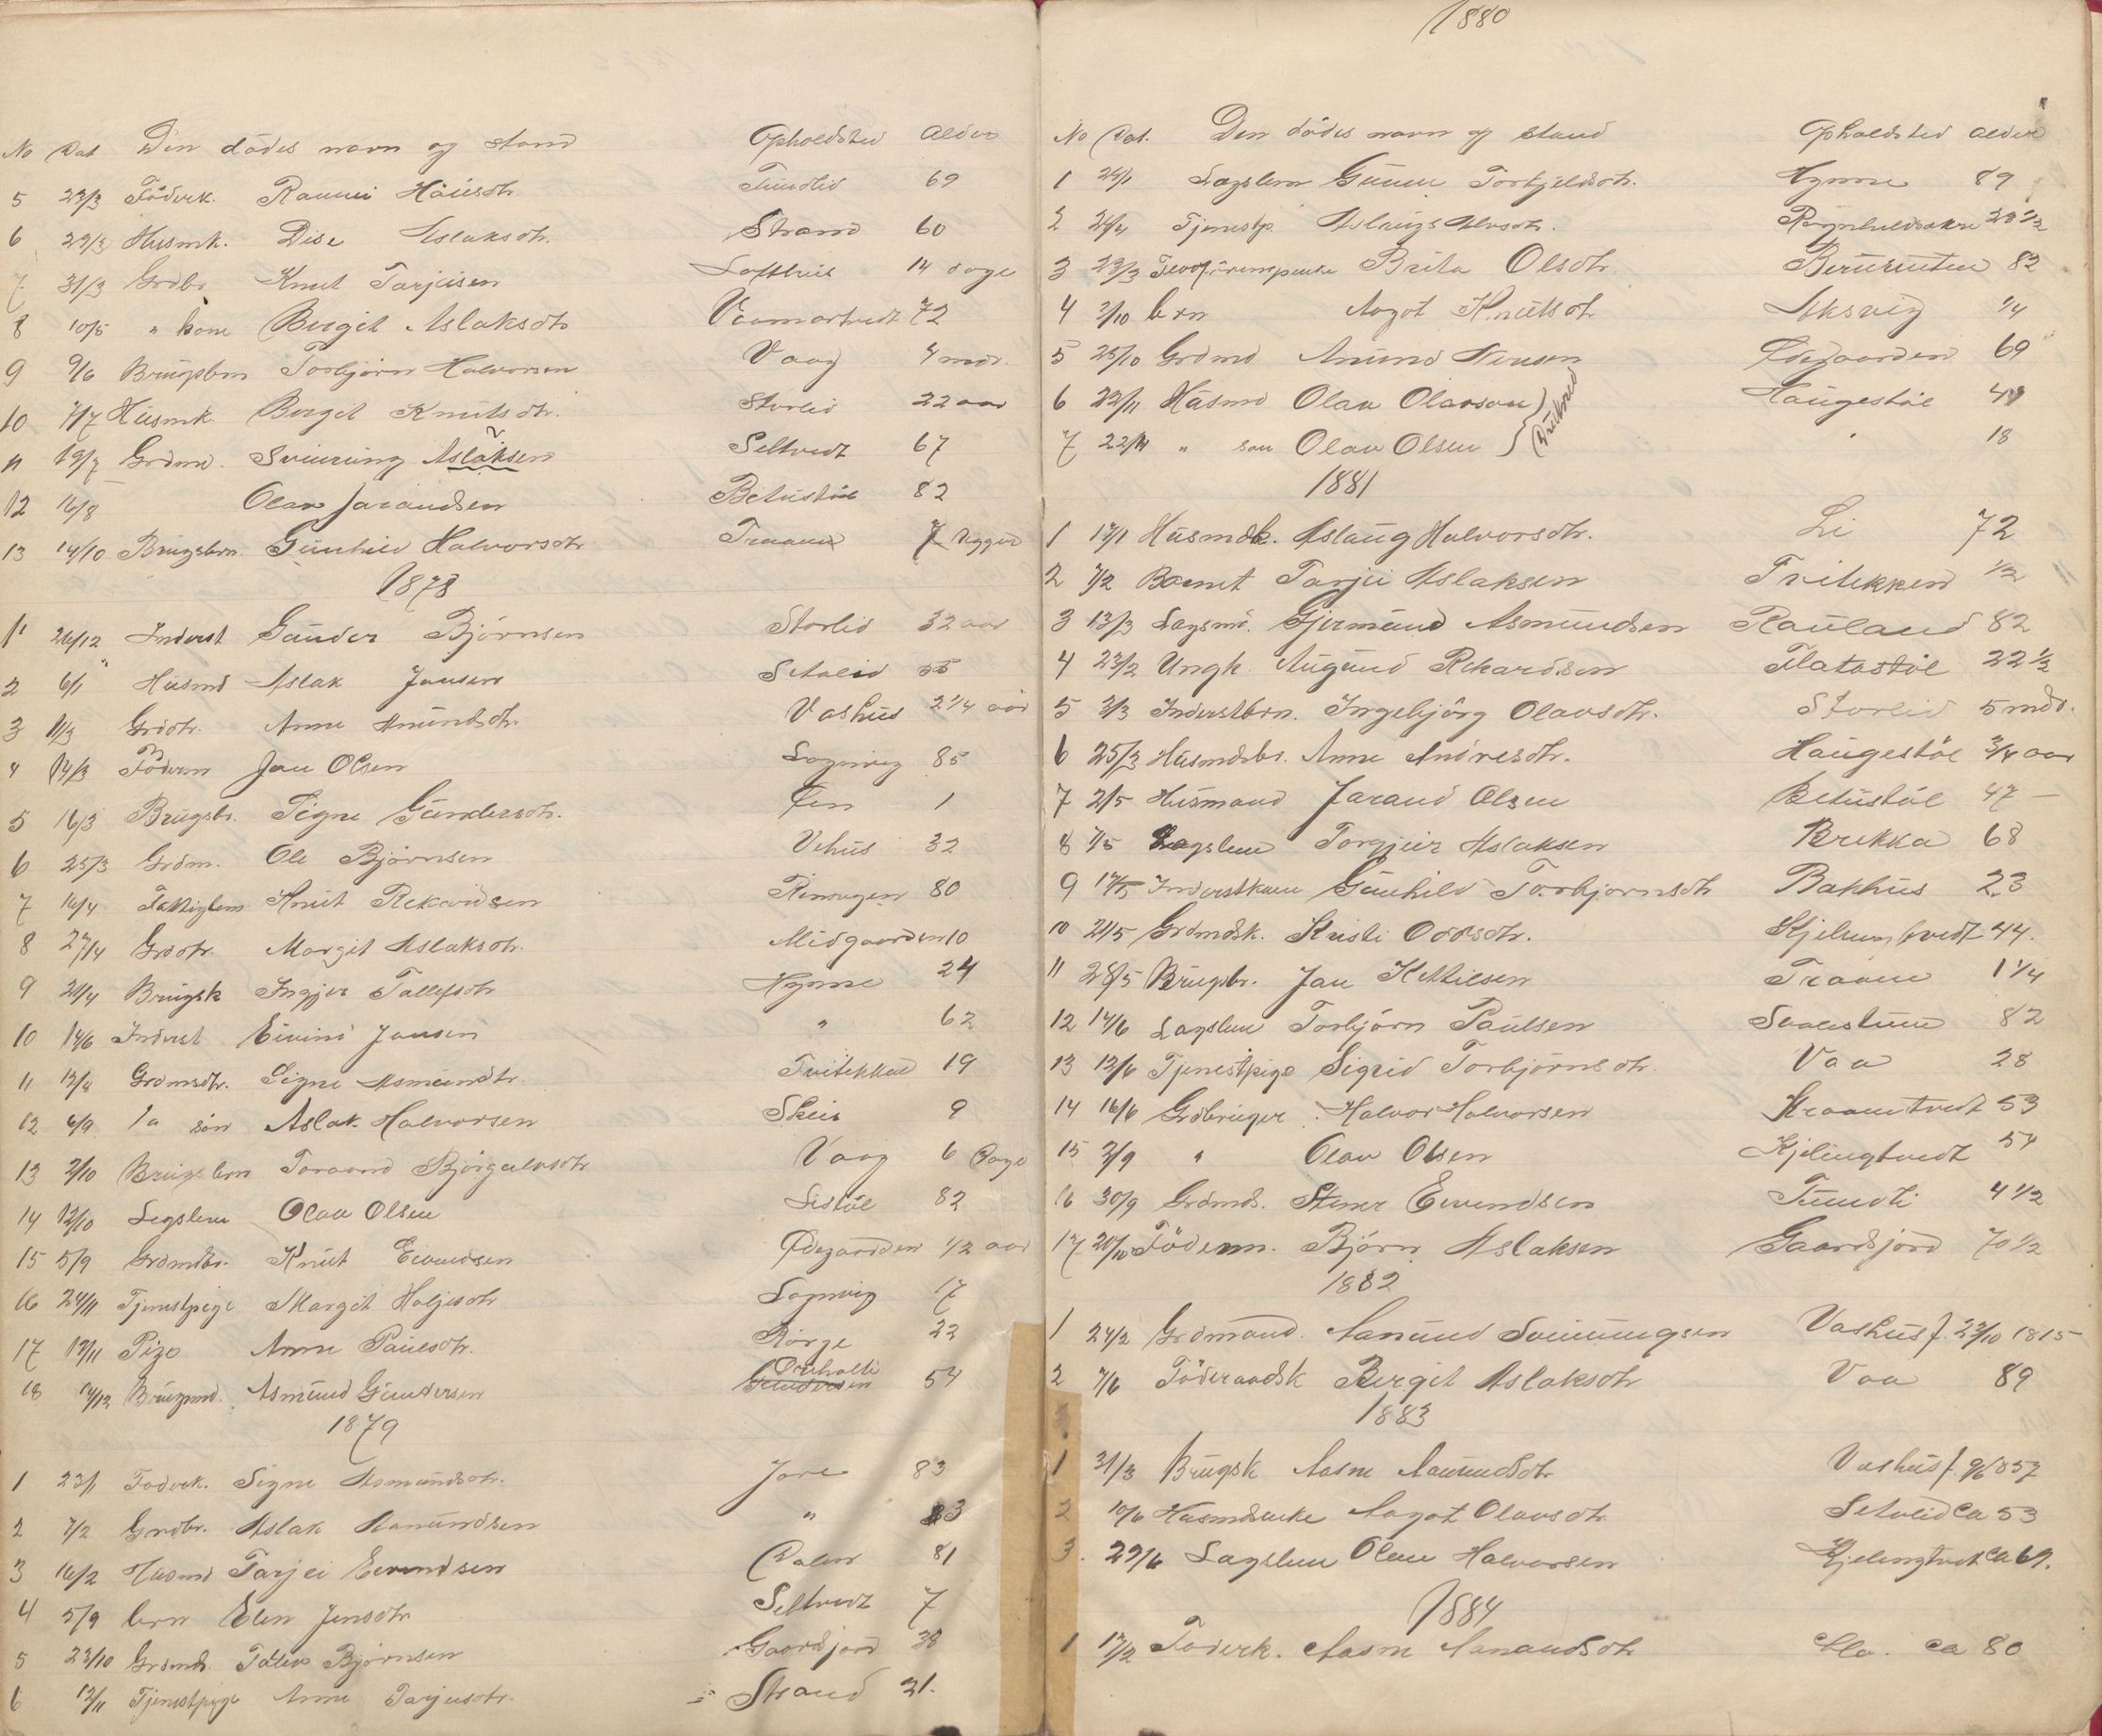 No Dat Den dødes navn og stand Opholdsted Alder
5 23/3 Föderk. Rannei Håiesdtr. Tundlid 69
6 29/3 Husmk. Dise Aslaksdtr. Strand 60
7 31/3 Grdbr. Knut Tarjeisen Lofthus 14 dage
8 10/5 " kone Bergit Aslaksdtr Vaamartvedt 72
9 9/6 Brugsbrn Torbjörn Halvorsen Vaag 4 mdr.
10 7/7 Husmk. Bergit Knutsdtr. Storlid 22 aar
11 19/7 Grdmd. Sveinung Aslaksen Seltvedt 67
12 16/8 Olav Jarandsen Betustöl 82
13 14/10 Brugsbrn. Gunhild Halvorsdtr Traaen 7 Uger
1878
1 26/12 Inderst Gunder Bjørnsen Storlid 32 aar
2 6/1 Husmd Aslak Jansen Setalid 55
3 11/3 Grdtr. Anne Amundsdtr. Vashus 2 1/4 aar
4 14/3 Föderm Jan Olsen Lognvig 85
5 16/3 Brugsbr. Signe Gundersdtr. Fen 1
6 25/3 Grdm. Ole Bjørnsen Vehus 32
7 16/4 Fattiglem Knut Rekardsen 80
8 27/4 Grdtr. Margit Aslaksdtr. Midgaarden 10
9 21/4 Brugsk Ingjer Tallefsdtr Hynne 24
10 14/6 Inderst Eivind Jansen " 62
11 12/8 Grdmsdtr. Signe Asmundtr. Tvitekken 19
12 6/9 sön Aslak Halvorsen Skeie 9
13 2/10 Brugsbrn Taraand Bjørgulvsdtr Vaag 6 Dage
14 12/10 Legslem Olav Olsen Listöl 82
15 5/9 Grdmdbr. Knut Eivindsen Ødegaarden 1/2 aar
16 24/11 Tjenestpige Margit Haljesdtr Lognvig 17
17 13/11 Pige Anne Paulsdtr. Börge 22
18 14/12 Brugsmd. Asmund Gundersen Gundersen Overhalti 54
1879
1 23/1 Föderk. Signe Asmundsdtr. Jore 83
2 7/2 Grdbr. Aslak Aamundsen " 83
3 16/2 Husmd Tarjei Eivindsen Dalen 81
4 5/9 brn Elen Jensdtr Seltvedt 7
5 23/10 Grdmd. Tallev Bjørnsen Gaardsjord 38
6 12/11 Tjenestpige Anne Tarjeisdtr. Strand 21.
1880
No Dat. Den dødes navn og stand Opholdsted alder
1 24/1 Lagslem Gunne Torkjelsdtr. Hynne 89
2 24/4 Tjenestp. Aslaug Alvsdtr. Ragnhildsakre 28 1/2
3 23/3 Brita Olsdtr Berunuten 82
4 2/10 brn Aagot Knutsdtr Aksvig 1/4
5 25/10 Grdmd Amund Ødegaarden 69
6 22/11 Husmd Olav Olavson Haugestöl 49
7 22/11 " søn Olav Olsen (Druknet) " 18
1881
1 17/1 Husmdk. Aslaug Halvorsdtr. Li 72
2 7/2 Barnet Tarjei Aslaksen Tvitekken 1/2
3 13/3 Lagsmd. Gjermund Asmundsen Rauland 82
4 23/2 Ungk. Augund Rekardsen Flatastöl 22 1/2
5 2/3 Inderstbrn. Ingebjörg Olavsdtr. Storlid 5 mdr.
6 25/3 Husmdsbr. Anne Andresdtr. Haugestöl 3/4 aar
7 2/5 Husmand Jarand Olsen Betustöl 47 —
8 7/5 Lagslem Torgjeir Aslaksen Brekka 68
9 17/5 Inderstkone Gunhild Torbjørnsdtr Bakhus 23
10 21/5 Grdmdsk. Kristi Oddsdtr. Kjelingtvedt 44.
11 28/5 Brugsbr. Jan Kittilsen Traaen 1 1/4
12 14/6 Lagslem Torbjörn Paulsen 82
13 12/6 Tjenestpige Sigrid Torbjørnsdtr. Vaa 28
14 16/6 Grdbruger Halvor Halvorsen Kraamtvedt 53
15 2/9 " Olav Olsen Kjelingtvedt 54
16 30/9 Grdmds. Steiner Eivindsen Tundli 4 1/2
17 20/10 Föderm. Bjørn Aslaksen Gaardsjord 70 1/2
1882
1 24/2 Grdmand. Aamund Sveinungsen Vashus f. 23/10 1815
2 7/6 Föderaadsk Bergit Aslaksdtr Vaa 89
1883
1 31/3 Brugsk Aasne Aamundsdtr Vashus f. 9/6 1857
2 10/6 Husmdsenke Aagot Olavsdtr Setalid Ca 53
3. 29/6 Lagslem Olav Halvorsen Kjelingtvedt Ca 69.
1884
1 17/2 Föderk. Aasne Aamundsdtr ca 80